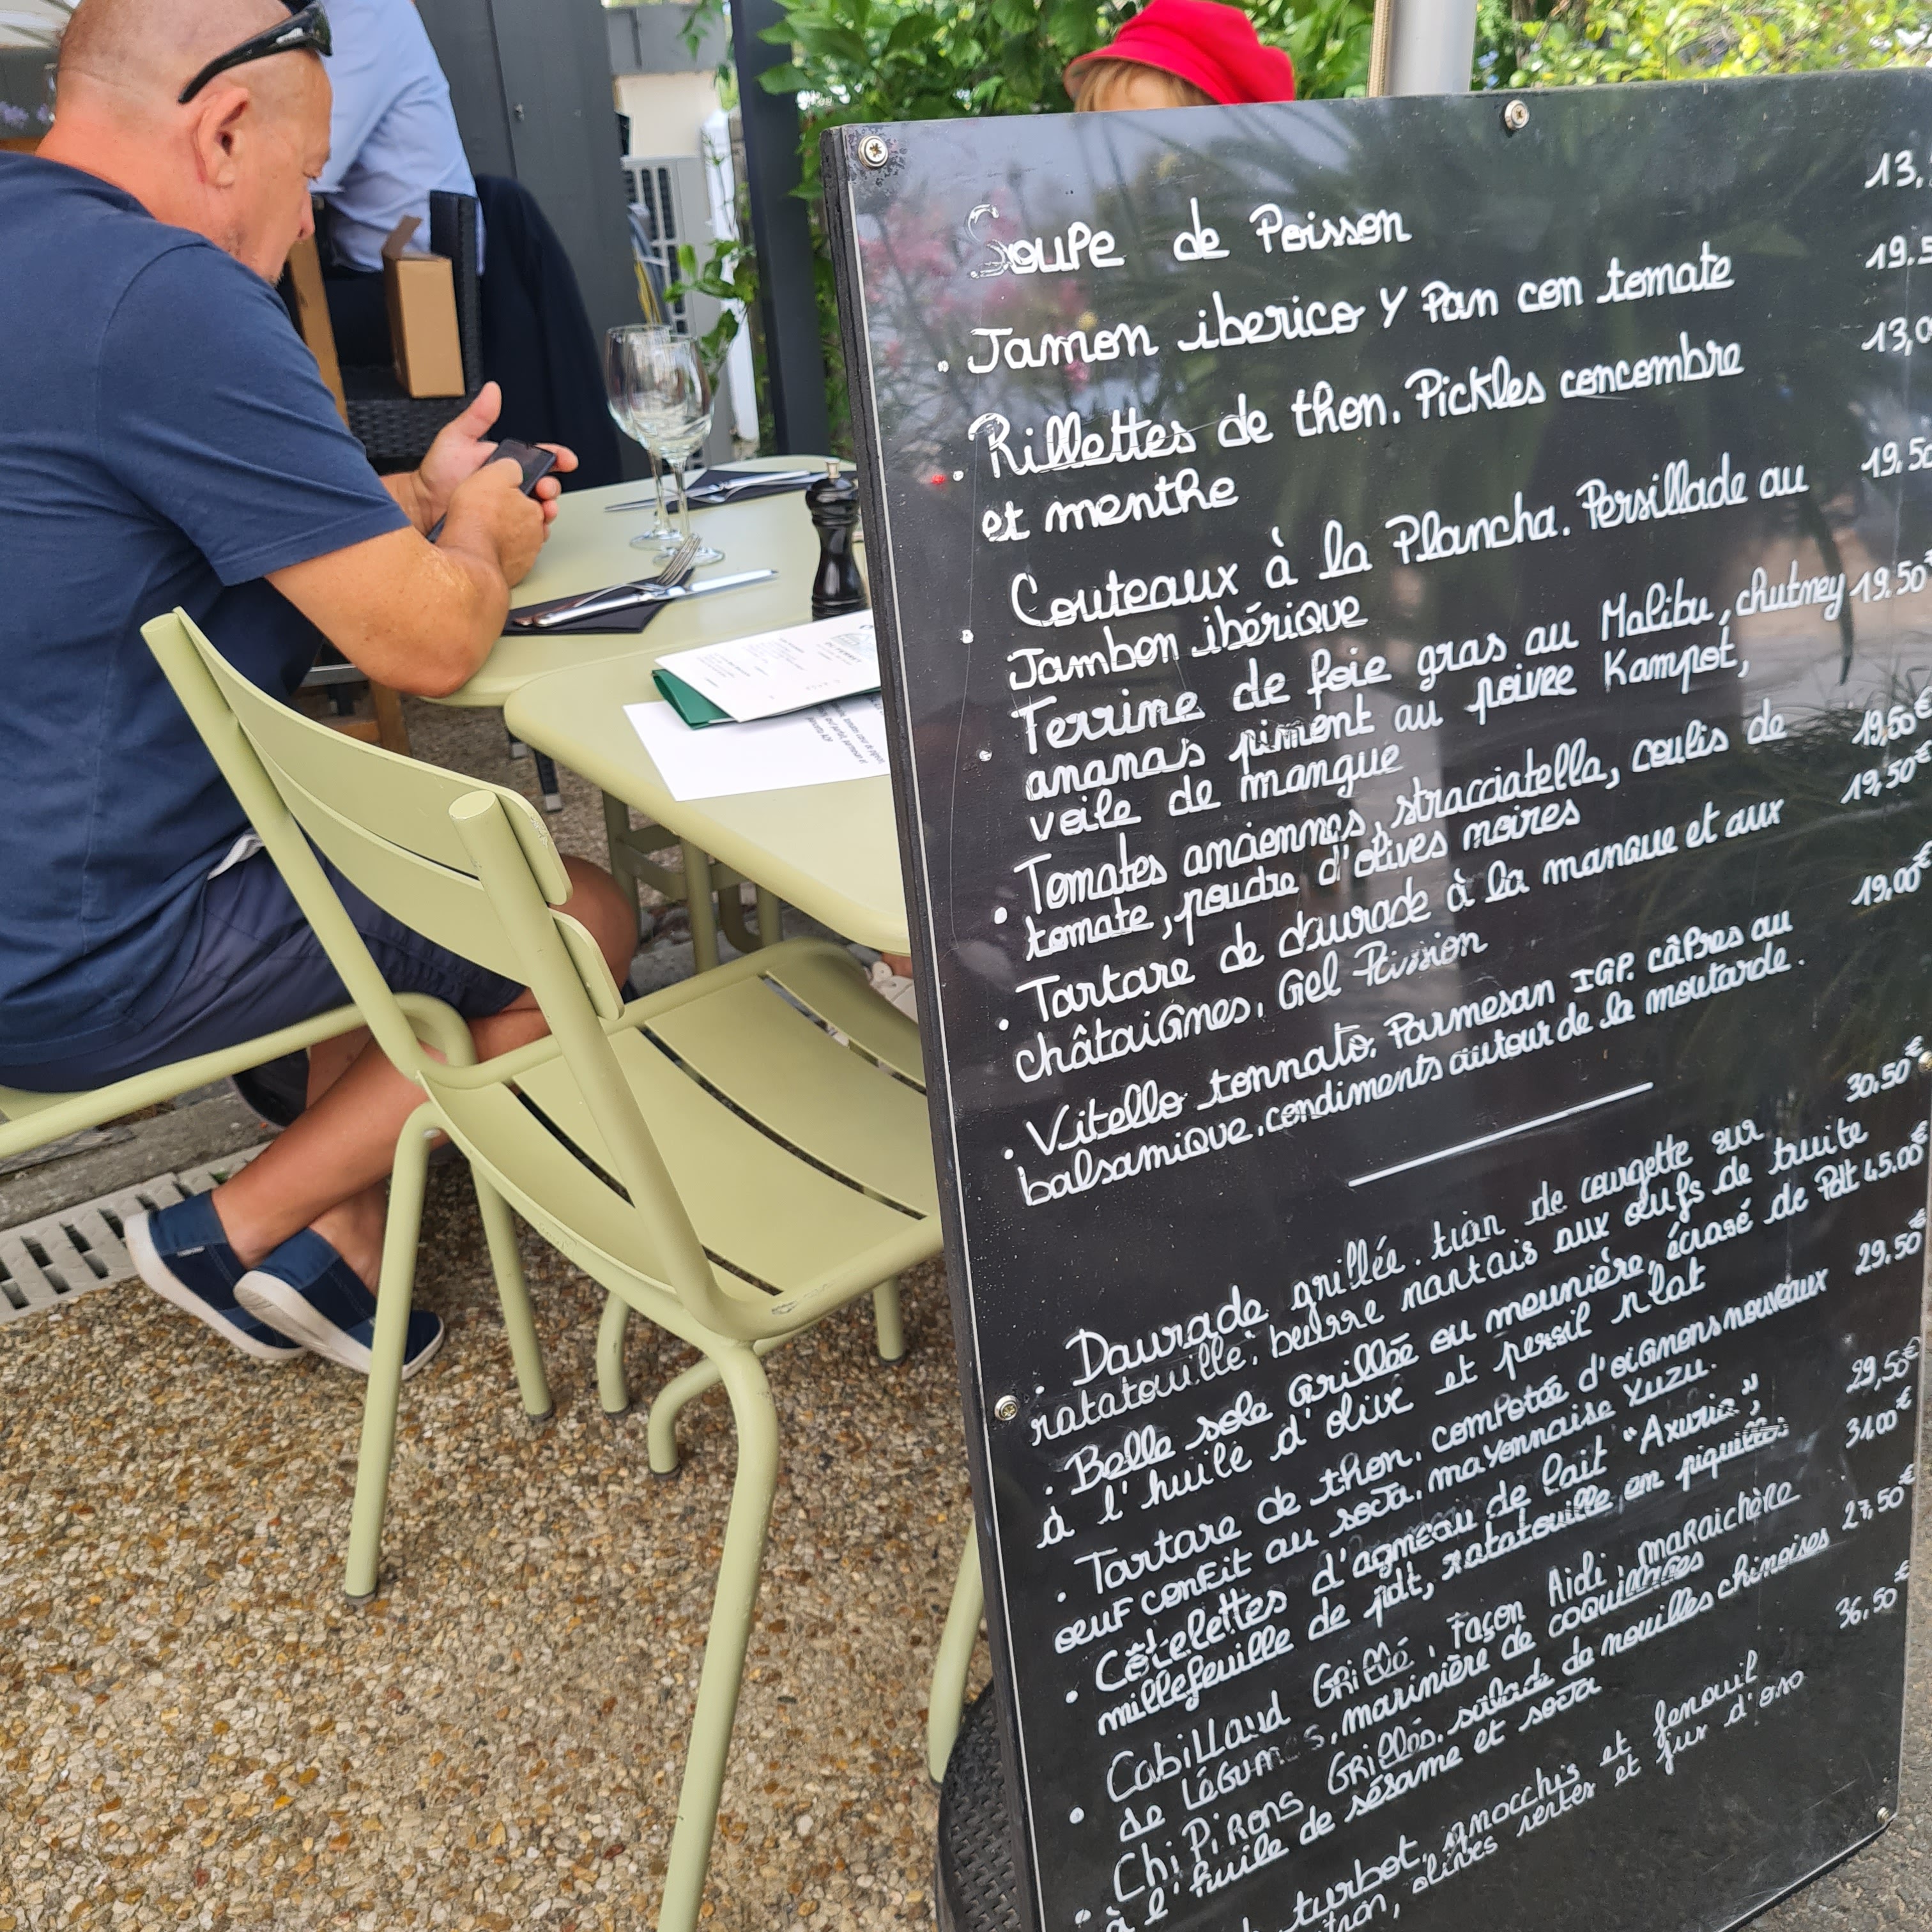 Soupe de Poisson 13,
. Jamon iberico Y Pan con tomate 19.5
. Rillettes de thon. Pickles concombre 13,0
et menthe
. Couteaux à la Plancha. Persillade au 19.50
Jambon ibérique
. Terrine de foie gras au Malibu, chutney 19.50€
ananas piment au poivre Kampot,
voile de mangue
. Tomates anciennes, stracciatella, coulis de 19,50€
tomate, poudre d'olives noires
. Tartare de daurade à la mangue et aux 19,50€
châtaignes, Gel Passion
. Vitello tonnato, Parmesan IGP. câpres au 19,00€
balsamique, condiments autour de la moutarde.
. Daurade grillée. tian de courgette sur 30.50€
ratatouille, beurre nantais aux œufs de truite
. Belle sole Grillée ou meunière, écrasé de Pdt 45.00€
à l'huile d'olive et persil plat
. Tartare de thon, compotée d'oignons nouveaux 29,50€
oeuf confit au soja, mayonnaise Yuzu.
. Côtelettes d'agneau de lait "Axuria", 29,50€
millefeuille de pdt, ratatouille en piquillos 31.00€
. Cabillaud Grillé, façon Aioli, maraichère
de légumes, marinière de coquillages 27,50€
. Chipirons Grillés, salade de nouilles chinoises
à l'huile de sésame et soja 36,50€
turbot, gnocchis et fenouil
olives vertes et jus d'oso